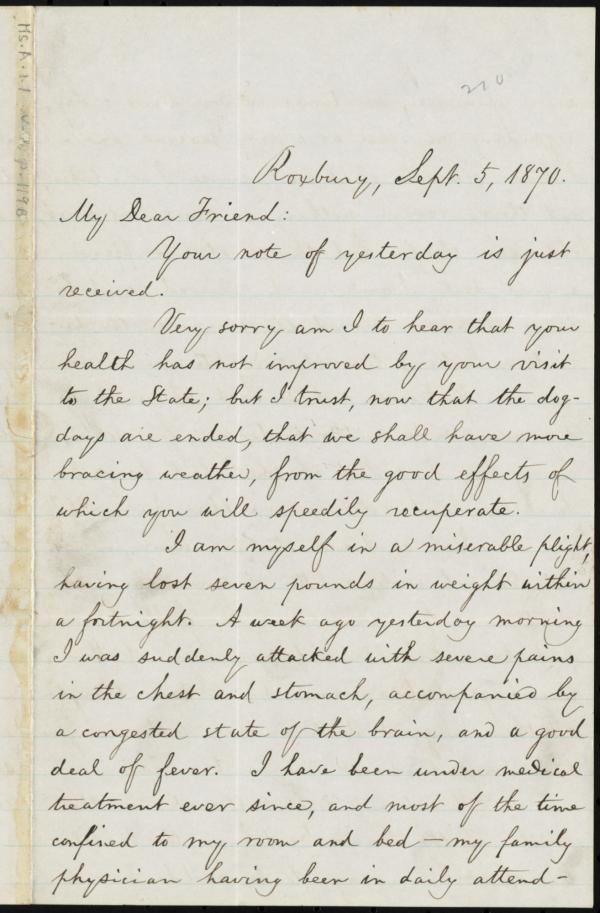 210
Roxbury, Sept. 5, 1870.
My Dear Friend:
Your note of yesterday is just
received.
Very sorry am I to hear that your
health has not improved by your visit
to the State; but I trust, now that the dog-
days are ended, that we shall have more
bracing weather, from the good effects of
which you will speedily recuperate.
I am myself in a miserable plight,
having lost seven pounds in weight within
a fortnight. A week ago yesterday morning
I was suddenly attacked with severe pains
in the chest and stomach, accompanied by
a congested state of the brain, and a good
deal of fever. I have been under medical
treatment ever since, and most of the time
confined to my room and bed — my family
physician having been in daily attend-
Ms. A. 1.1